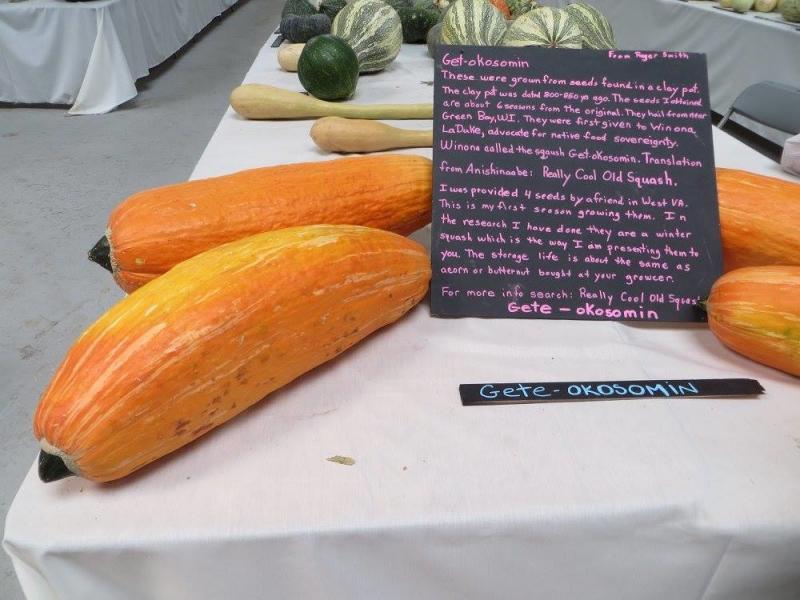 Get-okosomin
From Roger Smith
These were grown from seeds found in a clay pot.
The clay pot was dated 800-850 yrs ago. The seeds I obtained
are about 6 seasons from the original. They hail from near
Green Bay, WI. They were first given to Winona
LaDuke, advocate for native food sovereignty.
Winona called the sqaush Get-okosomin. Translation
from Anishinaabe: Really Cool Old Squash.
I was provided 4 seeds by a friend in West VA.
This is my first season growing them. In
the research I have done they are a winter
squash which is the way I am presenting them to
you. The storage life is about the same as
acorn or butternut bought at your growcer.
For more info search: Really Cool Old Squas
Gete - okosomin
Gete-OKOSOMIN